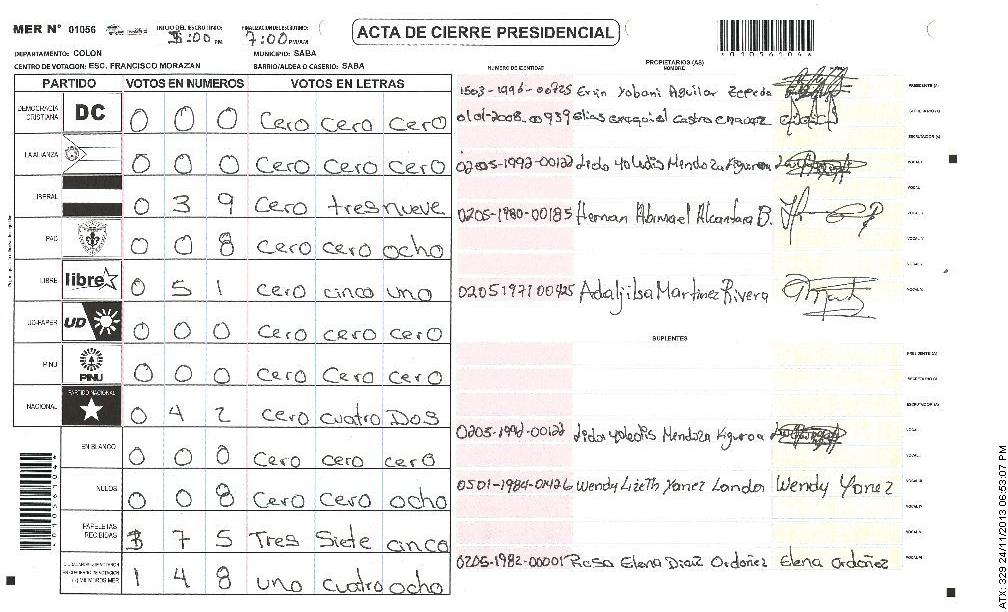 MER N° 01056 INICIO DEL ESCRUTINIO: :00 PM FINALIZACION DEL ESCRUTINIO: 7:00 PM/AM
ACTA DE CIERRE PRESIDENCIAL
DEPARTAMENTO: COLON MUNICIPIO: SABA
CENTRO DE VOTACION: ESC. FRANCISCO MORAZAN BARRIO/ALDEA O CASERIO: SABA
PARTIDO VOTOS EN NUMEROS VOTOS EN LETRAS
DEMOCRACIA CRISTIANA DC 0 0 0 Cero cero cero
LA ALIANZA 0 0 0 Cero cero cero
LIBERAL 0 3 9 Cero tres nueve
PAC 0 0 8 Cero cero ocho
LIBRE libre 0 5 1 Cero cinco uno
UD-FAPER UD 0 0 0 Cero cero cero
PINU PINU 0 0 0 Cero Cero cero
NACIONAL PARTIDO NACIONAL 0 4 2 Cero cuatro Dos
EN BLANCO 0 0 0 Cero cero cero
NULOS 0 0 8 Cero Cero ocho
PAPELETAS RECIBIDAS 3 7 5 Tres Siete cinco
1 4 8 uno cuatro ocho
NUMERO DE IDENTIDAD PROPIETARIOS (AS) NOMBRE
1503-1996-00725 Erin Yobani Aguilar Zepeda PRESIDENTE (A)
0101-2008-00939 Elias Castro SECRETARIO (A)
ESCRUTADOR (A)
0205-1992-00122 Lida Yoledis Mendoza Figueroa VOCAL I
0205-1980-00185 Hernan Abimael Alcantara B.
02051971 00425 Adaljilsa Martinez Rivera
SUPLENTES
PRESIDENTE (A)
SECRETARIO (A)
ESCRUTADOR (A)
0205-1992-00122 Lida Yoledis Mendoza Figueroa
0501-1984-01426 Wendy Lizeth Yanez Landa Wendy Yanez
0205-1982-00001 Rosa Elena Diaz Ordoñez Elena Ordoñez
ATX: 329 24/11/2013 06:53:07 PM